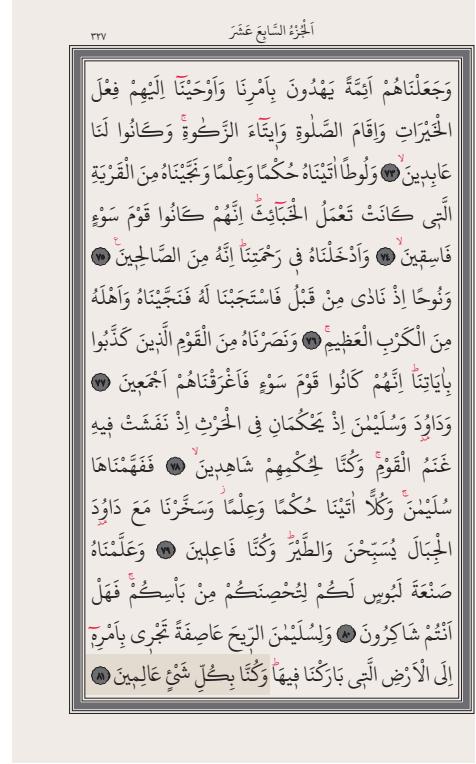 اَلْجُزْءُ السَّابِعَ عَشَرَ
٣٢٧
وَجَعَلْنَاهُمْ اَئِمَّةً يَهْدُونَ بِاَمْرِنَا وَاَوْحَيْنَٓا اِلَيْهِمْ فِعْلَ
الْخَيْرَاتِ وَاِقَامَ الصَّلٰوةِ وَا۪يتَٓاءَ الزَّكٰوةِۚ وَكَانُوا لَنَا
عَابِد۪ينَۙ ﴿٧٣﴾ وَلُوطًا اٰتَيْنَاهُ حُكْمًا وَعِلْمًا وَنَجَّيْنَاهُ مِنَ الْقَرْيَةِ
الَّت۪ي كَانَتْ تَعْمَلُ الْخَبَٓائِثَۜ اِنَّهُمْ كَانُوا قَوْمَ سَوْءٍ
فَاسِق۪ينَۙ ﴿٧٤﴾ وَاَدْخَلْنَاهُ ف۪ي رَحْمَتِنَاۜ اِنَّهُ مِنَ الصَّالِح۪ينَ۟ ﴿٧٥﴾
وَنُوحًا اِذْ نَادٰى مِنْ قَبْلُ فَاسْتَجَبْنَا لَهُ فَنَجَّيْنَاهُ وَاَهْلَهُ
مِنَ الْكَرْبِ الْعَظ۪يمِۚ ﴿٧٦﴾ وَنَصَرْنَاهُ مِنَ الْقَوْمِ الَّذ۪ينَ كَذَّبُوا
بِاٰيَاتِنَاۜ اِنَّهُمْ كَانُوا قَوْمَ سَوْءٍ فَاَغْرَقْنَاهُمْ اَجْمَع۪ينَ ﴿٧٧﴾
وَدَاوُ۫دَ وَسُلَيْمٰنَ اِذْ يَحْكُمَانِ فِي الْحَرْثِ اِذْ نَفَشَتْ ف۪يهِ
غَنَمُ الْقَوْمِۚ وَكُنَّا لِحُكْمِهِمْ شَاهِد۪ينَۙ ﴿٧٨﴾ فَفَهَّمْنَاهَا
سُلَيْمٰنَۚ وَكُلًّا اٰتَيْنَا حُكْمًا وَعِلْمًاۘ وَسَخَّرْنَا مَعَ دَاوُ۫دَ
الْجِبَالَ يُسَبِّحْنَ وَالطَّيْرَۜ وَكُنَّا فَاعِل۪ينَ ﴿٧٩﴾ وَعَلَّمْنَاهُ
صَنْعَةَ لَبُوسٍ لَكُمْ لِتُحْصِنَكُمْ مِنْ بَأْسِكُمْۚ فَهَلْ
اَنْتُمْ شَاكِرُونَ ﴿٨٠﴾ وَلِسُلَيْمٰنَ الرّ۪يحَ عَاصِفَةً تَجْر۪ي بِاَمْرِه۪ٓ
اِلَى الْاَرْضِ الَّت۪ي بَارَكْنَا ف۪يهَاۜ وَكُنَّا بِكُلِّ شَيْءٍ عَالِم۪ينَ ﴿٨١﴾